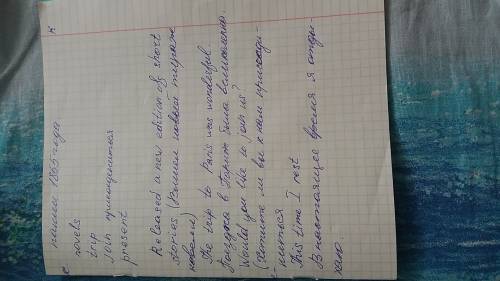 письма 1865-года
novels
trip
join присоединиться
present
Released a new edition of short
stories (Вышел новый тираж
новелл)
The trip to Paris was wonderful
Поездка в Париж была великолепна.
Would you like to join us?
(Хотите ли вы к нам присоеди-
ниться
This time I rest
В настоящее время я отды-
хаю